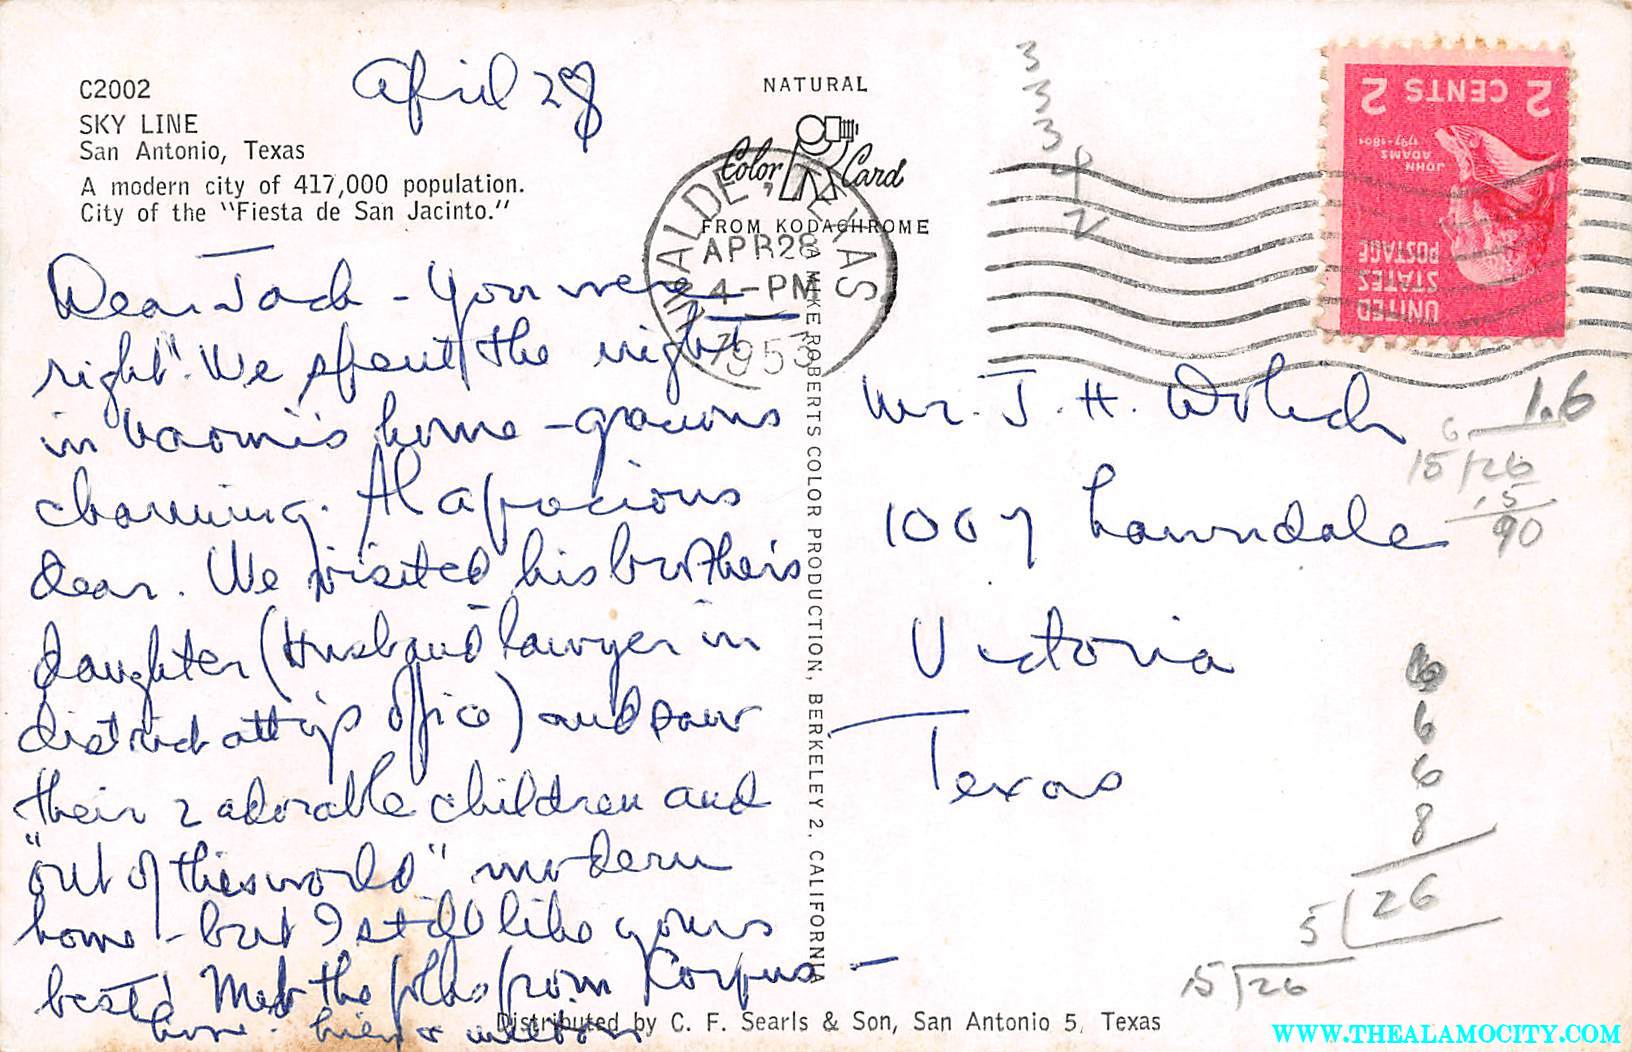 C2002
SKY LINE
San Antonio, Texas
A modern city of 417,000 population.
City of the "Fiesta de San Jacinto."
April 28
Dear Jack - You were
right". We spent the night
in Naomi's home - gracious
charming. Al a precious
dear. We visited his brother's
daughter (Husband lawyer in
district att'y's office) and saw
their 2 adorable children and
"out of this world" modern
home - but I still like yours
best! Met the folks from Corpus -
here.
NATURAL
Color Card
FROM KODACHROME
UVALDE, TEXAS
APR 28
4-PM
1953
A MIKE ROBERTS COLOR PRODUCTION, BERKELEY 2, CALIFORNIA
2 CENTS 2
JOHN
ADAMS
1797-1801
UNITED
STATES
POSTAGE
Mr. J. H.
1007 Lawndale
Victoria
Texas
3
3
3
2
1.6
15/26
15
90
6
6
8
5/26
15/26
Distributed by C. F. Searls & Son, San Antonio 5, Texas
WWW.THEALAMOCITY.COM